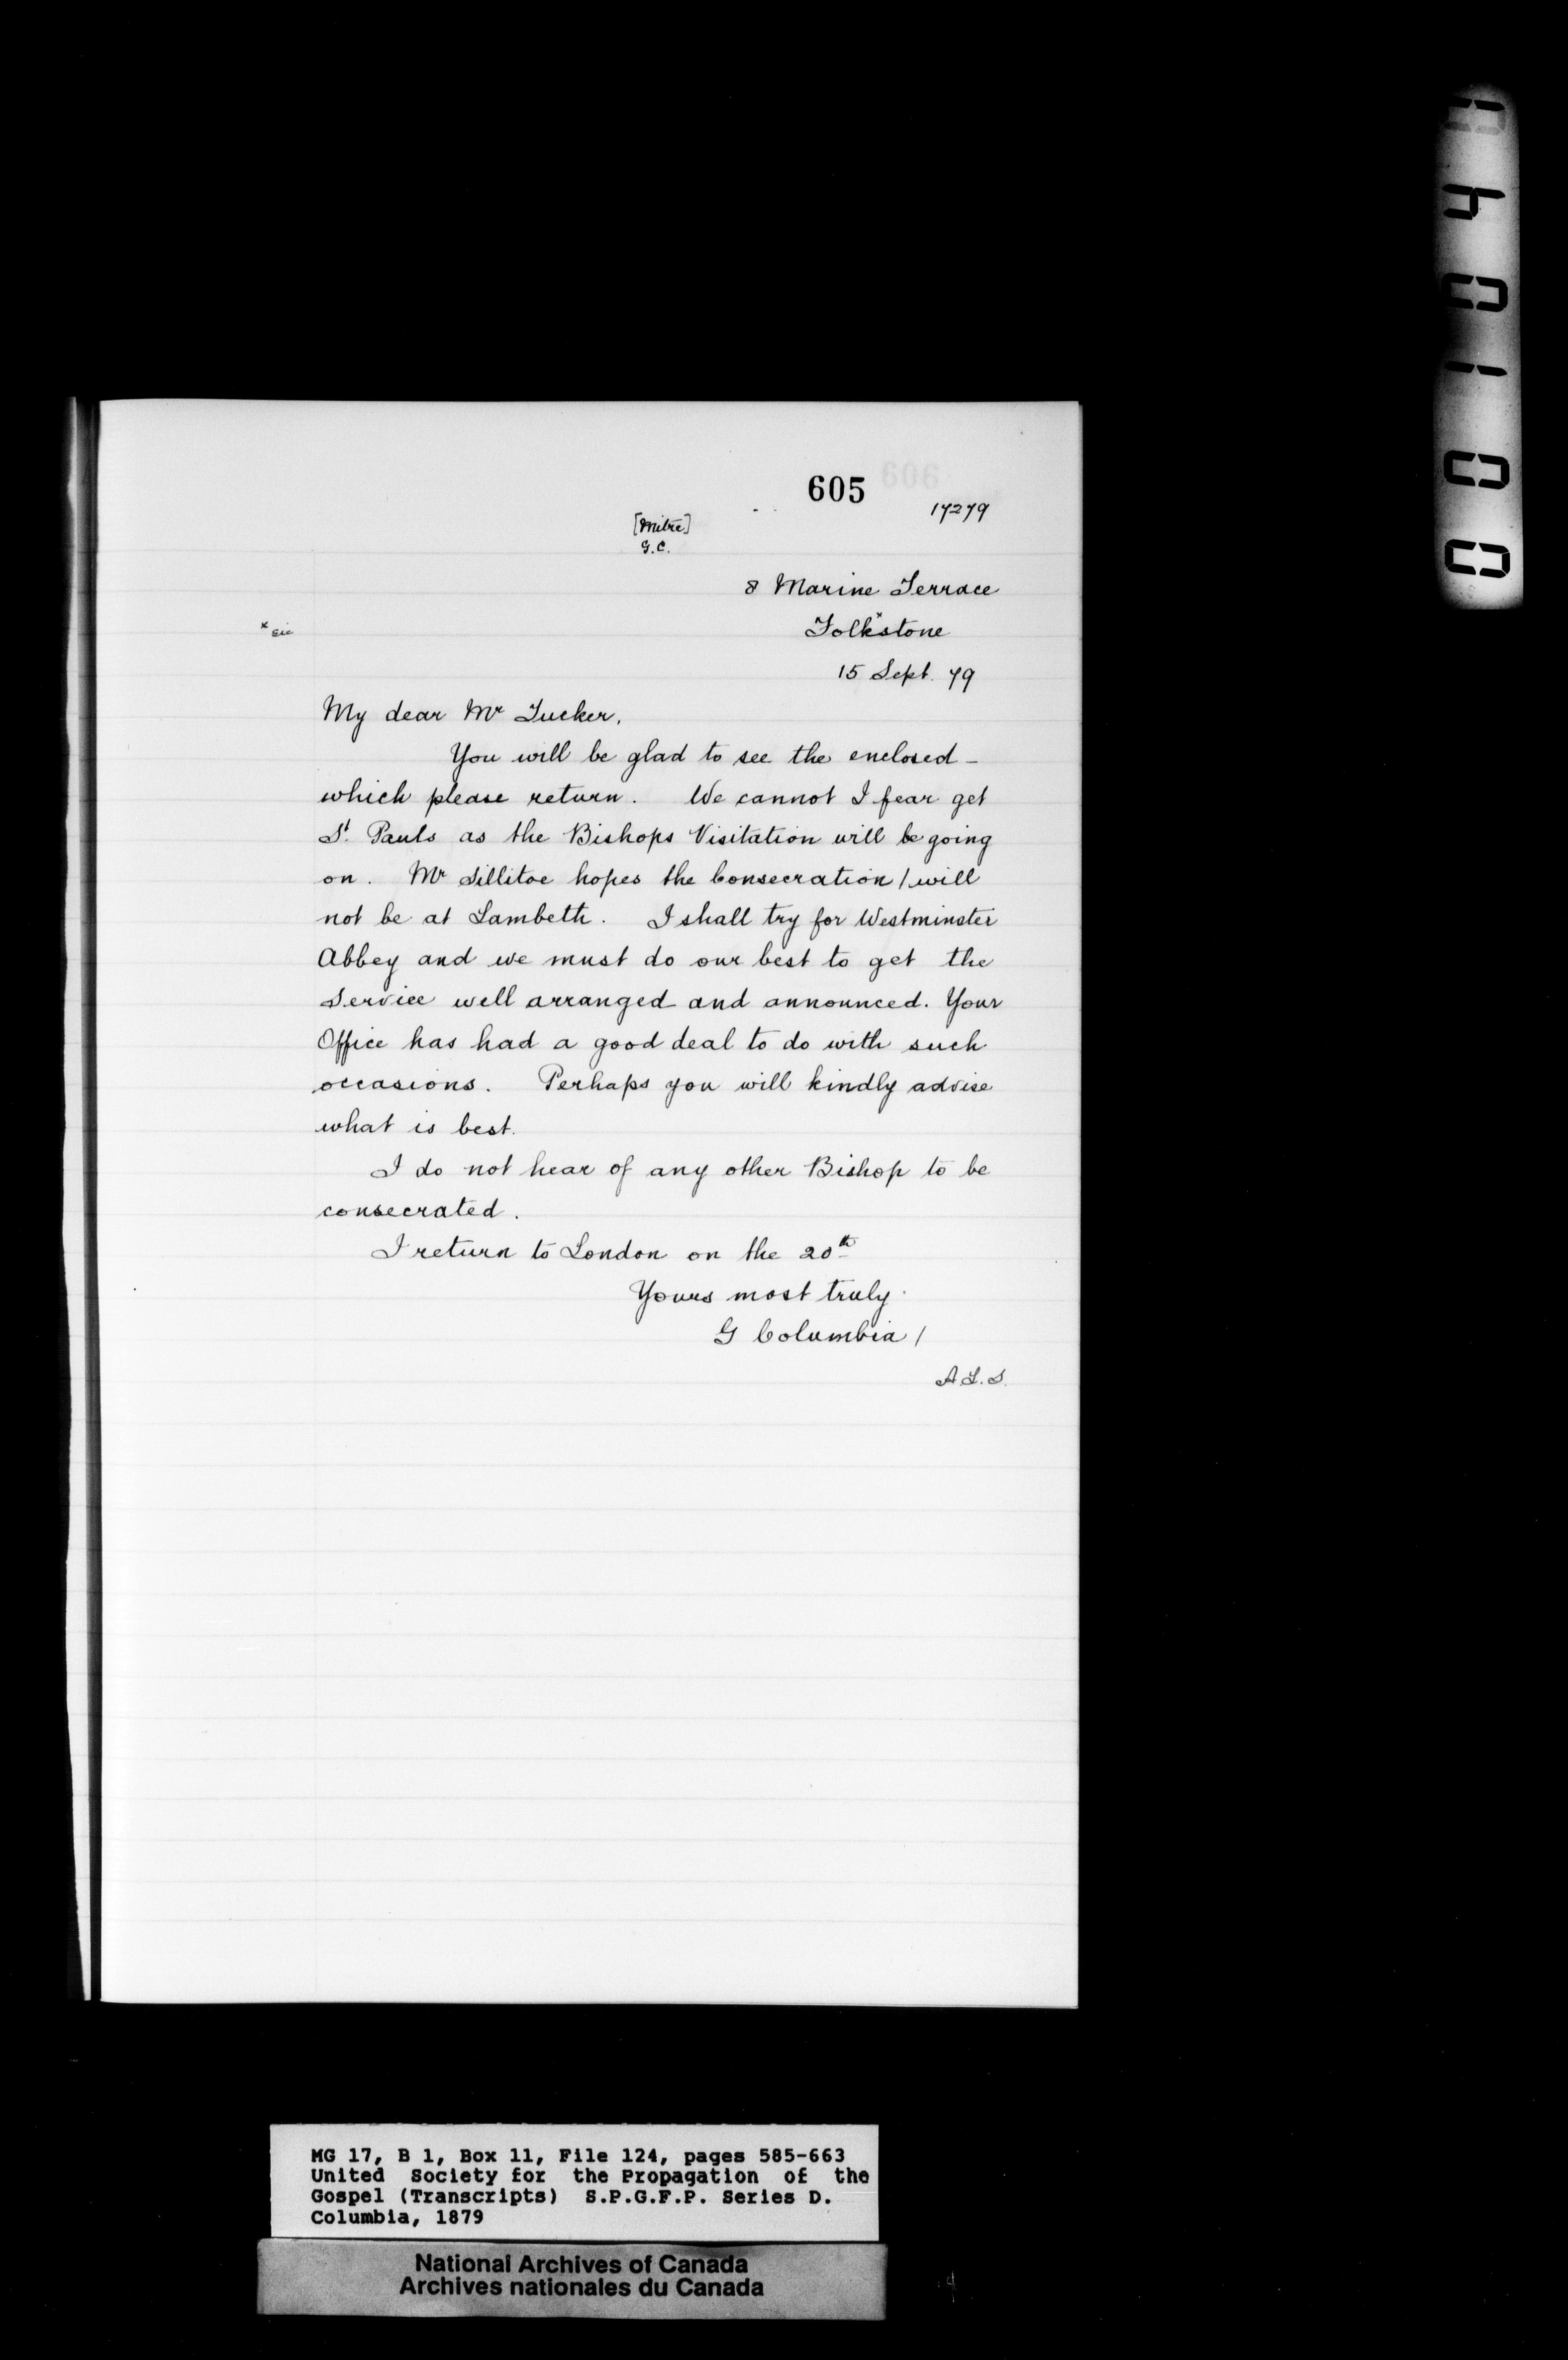 605
17279
[Mitre]
G.C.
8 Marine Terrace
Folk*stone
* sic
15 Sept. 79
My dear Mr Tucker,
You will be glad to see the enclosed –
which please return. We cannot I fear get
St. Pauls as the Bishops Visitation will be going
on. Mr Sillitoe hopes the Consecration / will
not be at Lambeth. I shall try for Westminster
Abbey and we must do our best to get the
Service well arranged and announced. Your
Office has had a good deal to do with such
occasions. Perhaps you will kindly advise
what is best.
I do not hear of any other Bishop to be
consecrated.
I return to London on the 20th
Yours most truly
G Columbia /
A.L.S.
MG 17, B 1, Box 11, File 124, pages 585-663
United Society for the Propagation of the
Gospel (Transcripts) S.P.G.F.P. Series D.
Columbia, 1879
National Archives of Canada
Archives nationales du Canada